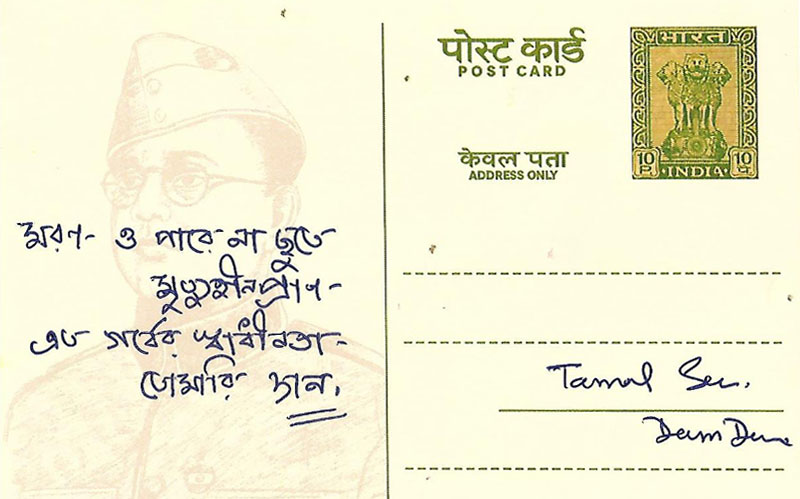 पोस्ट कार्ड
POST CARD
भारत
10 P
10 प
INDIA
केवल पता
ADDRESS ONLY
মরণ- ও পারে না ছুতে
মৃত্যুহীন প্রাণ-
এত গর্বের স্বাধীনতা-
তোমারি দান.
Tamal Sen.
Dum Dum